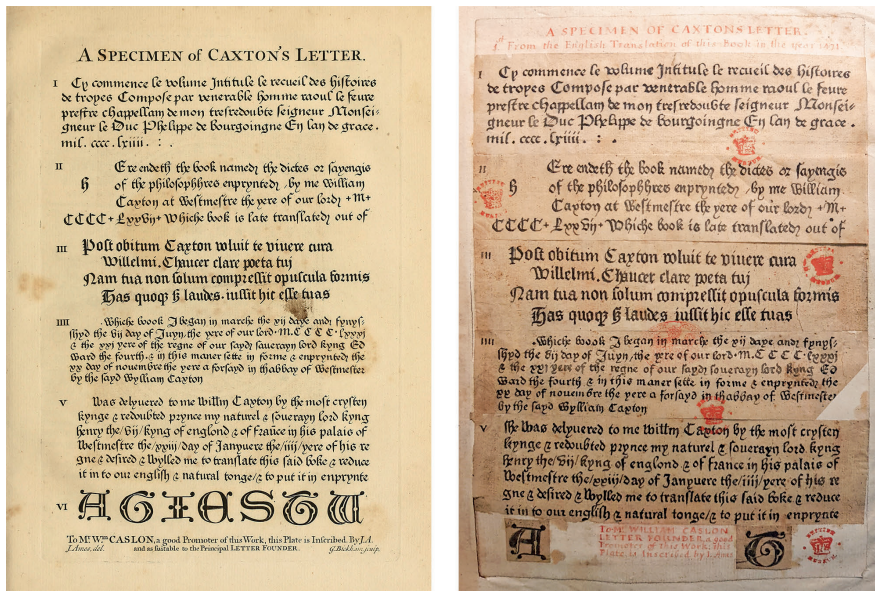 A SPECIMEN of CAXTON'S LETTER.
I Cy commence le volume Intitule le recueil des histoires
de troyes Compose par venerable homme raoul le feure
prestre chappellain de mon tresredoubte seigneur Monsei-
gneur le Duc Phelippe de bourgoingne En lan de grace.
mil. cccc. lxiiii. : .
II Ere endeth the book named the dictes or sayengis
h of the philosophhres enprynted, by me william
Caxton at westmestre the yere of our lord +M+
CCCC+LxxVij+ Whiche book is late translated out of
III Post obitum Caxton voluit te viuere cura
Willelmi. Chaucer clare poeta tuj
Nam tua non solum compressit opuscula formis
Has quoq; s; laudes. iussit hic esse tuas
IIII Whiche boook I began in marche the xij daye and fynys-
shyd the vij day of Juyn, the yere of our lord. M.C C C C. lxxxj
& the xxj yere of the regne of our sayd sauerayn lord kyng Ed
ward the fourth. & in this maner sette in forme & enprynted the
xx day of nouembre the yere a forsayd in thabbay of westmester
by the sayd wylliam Caxton
V Was delyuered to me willm Caxton by the most crysten
kynge & redoubted prynce my naturel & souerayn lord kyng
henry the/vij/kyng of englond & of france in his palais of
westmestre the/xxiij/day of Januyere the/iiij/yere of his re
gne & desired & wylled me to translate this said boke & reduce
it in to our english & natural tonge/& to put it in enprynte
VI A G I E S T W
To Mr. Wm. CASLON, a good Promoter of this Work, this Plate is Inscribed. By J.A.
J. Ames, del. and as suitable to the Principal LETTER FOUNDER. G. Bickham sculp.
A SPECIMEN OF CAXTONS LETTER.
From the English Translation of this Book in the year 1471
I Cy commence le volume Intitule le recueil des histoires
de troyes Compose par venerable homme raoul le feure
prestre chappellain de mon tresredoubte seigneur Monsei-
gneur le Duc Phelippe de bourgoingne En lan de grace.
mil. cccc. lxiiii. : .
II Ere endeth the book named the dictes or sayengis
h of the philosophhres enprynted, by me william
Caxton at westmestre the yere of our lord +M+
CCCC+LxxVij+ Whiche book is late translated out of
III Post obitum Caxton voluit te viuere cura
Willelmi. Chaucer clare poeta tuj
Nam tua non solum compressit opuscula formis
Has quoq; s; laudes. iussit hic esse tuas
IIII Whiche boook I began in marche the xij daye and fynys-
shyd the vij day of Juyn, the yere of our lord. M.C C C C. lxxxj
& the xxj yere of the regne of our sayd souerayn lord kyng Ed
ward the fourth & in this maner sette in forme & enprynted the
xx day of nouembre the yere a forsayd in thabbay of westmester
by the sayd wylliam Caxton
V She Was delyuered to me willm Caxton by the most crysten
kynge & redoubted prynce my naturel & souerayn lord kyng
henry the/vij/kyng of englond & of france in his palais of
westmestre the/xxiij/day of Januyere the/iiij/yere of his re
gne & desired & wylled me to translate this said boke & reduce
it in to our english & natural tonge/& to put it in enprynte
A To Mr. WILLIAM CASLON G
LETTER FOUNDER a good
Promoter of this Work, this
Plate is Inscribed by J. Ames